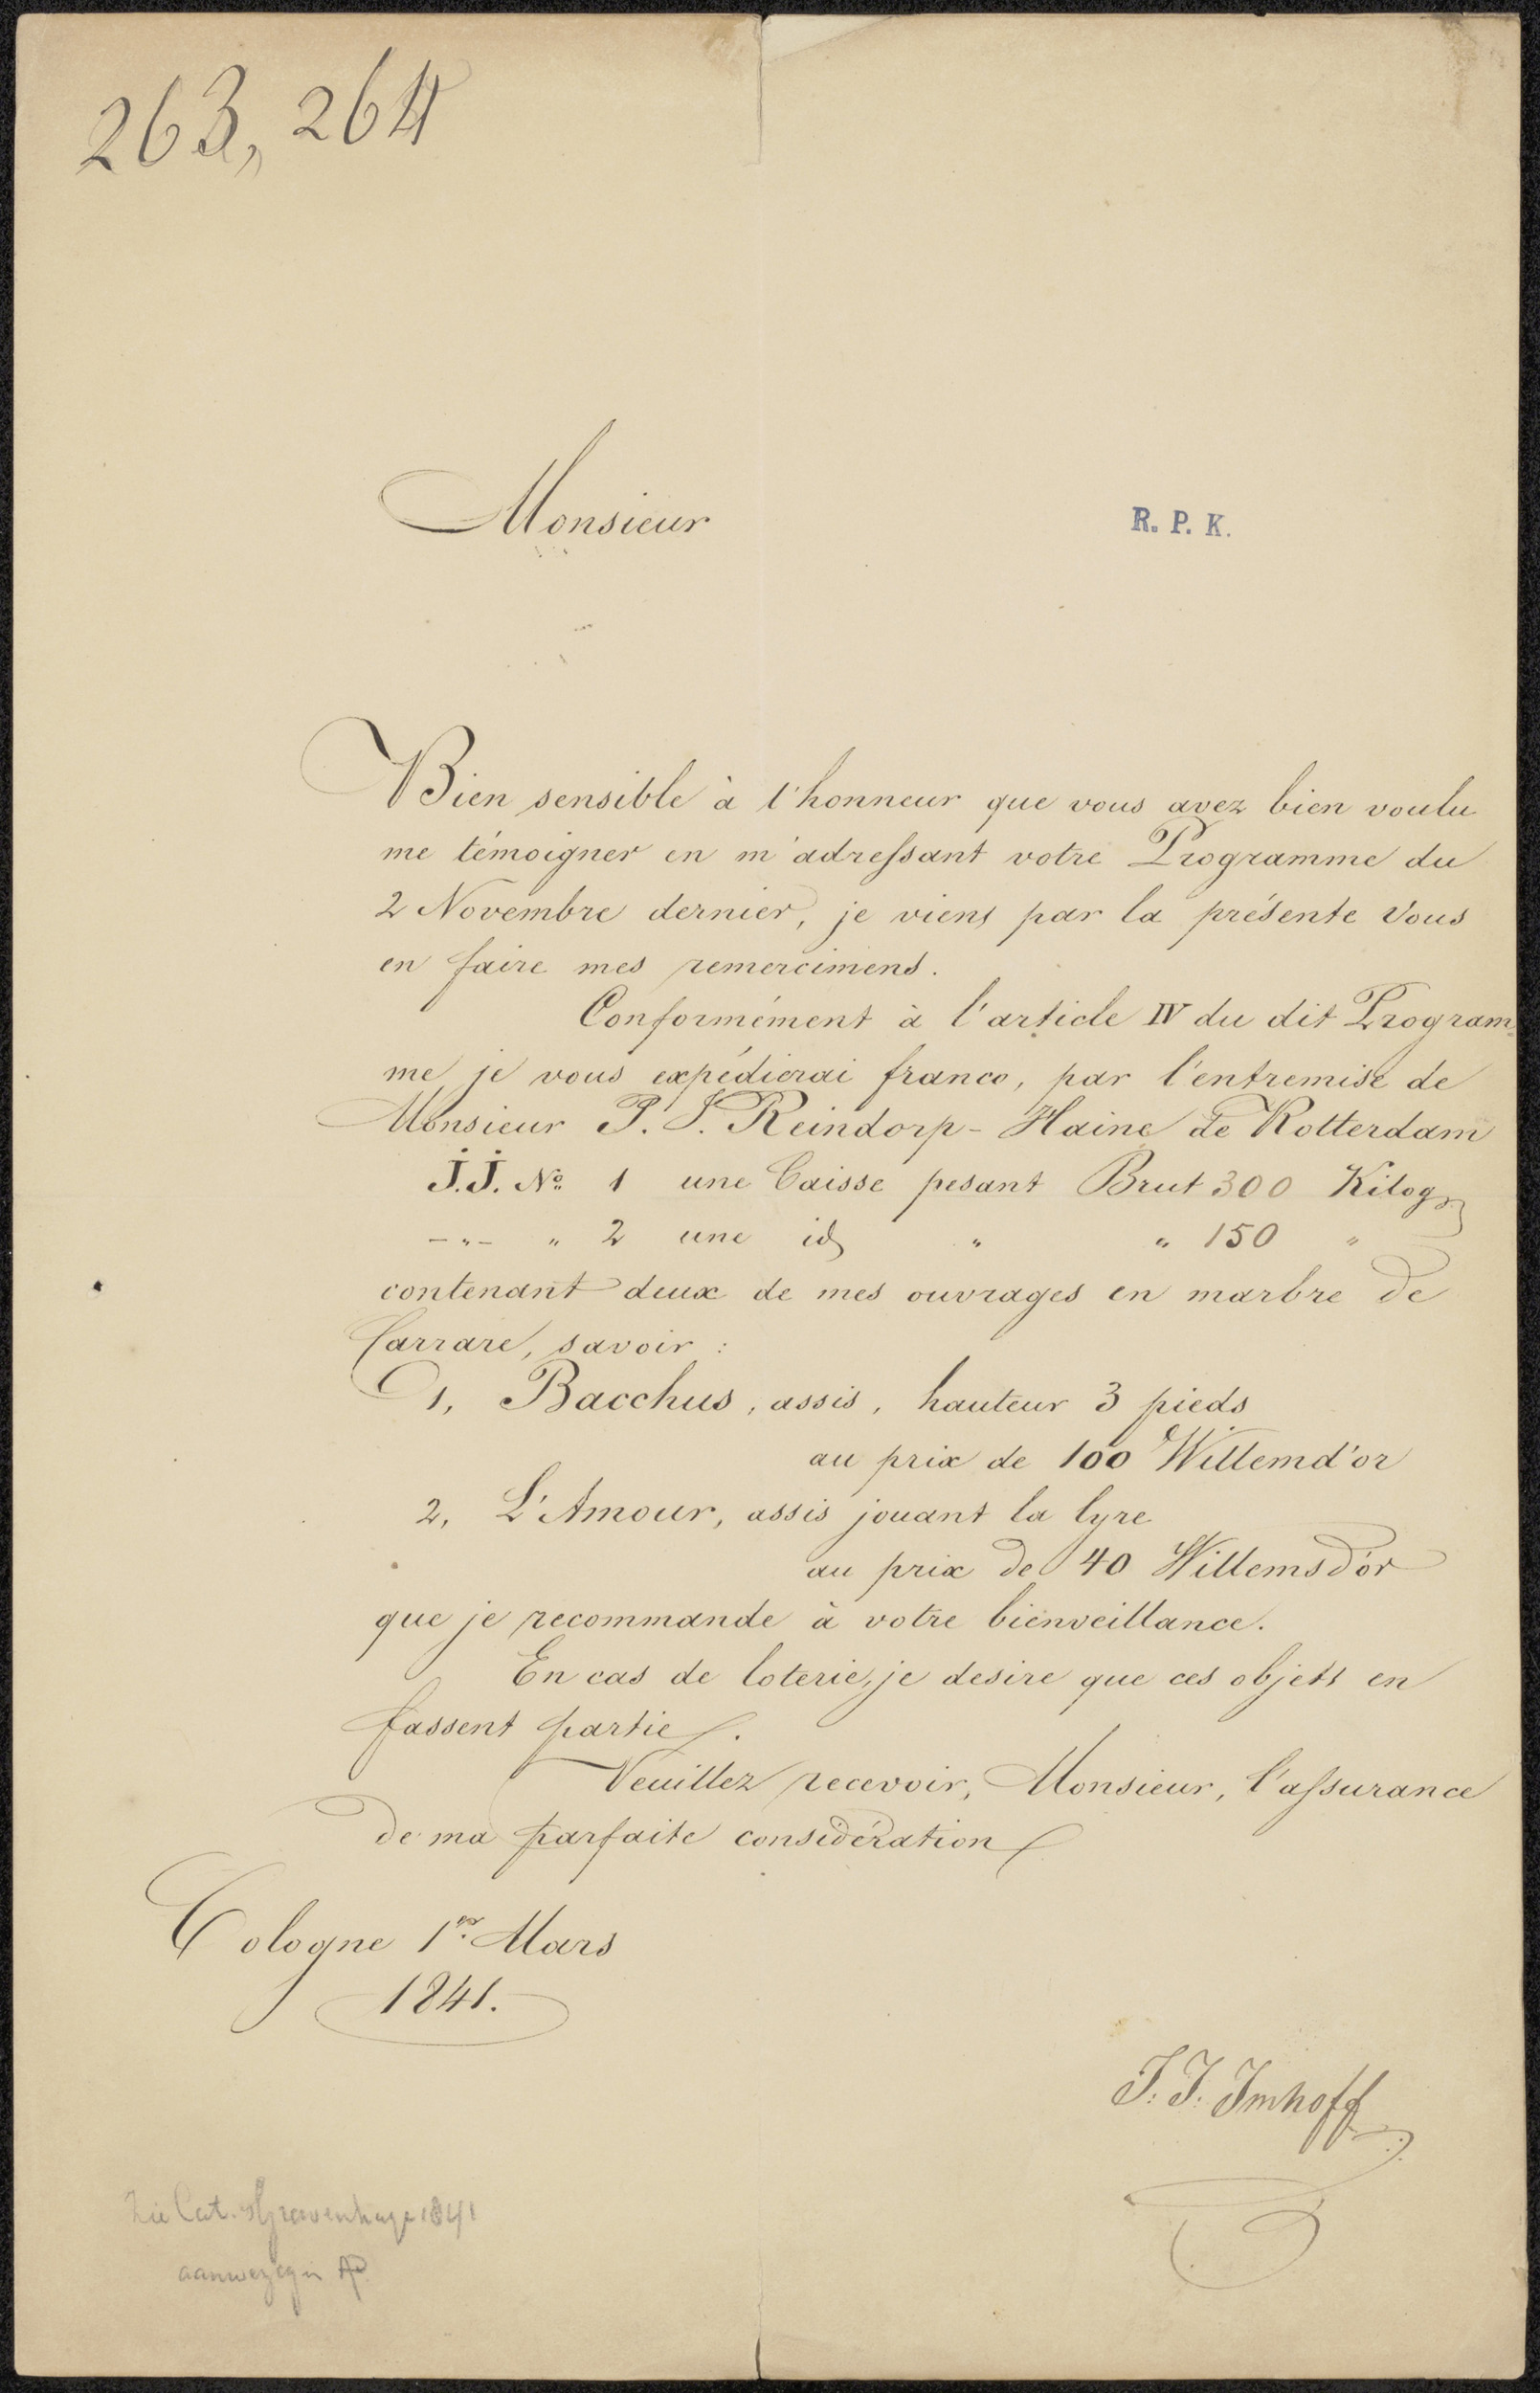 263, 264
Monsieur
R. P. K.
Bien sensible à l'honneur que vous avez bien voulu
me témoigner en m'adressant votre Programme du
2 Novembre dernier, je viens par la présente Vous
en faire mes remercimens.
Conformément à l'article IV du dit Program
me je vous expédierai franco, par l'entremise de
Monsieur P. J. Reindorp-Haine de Rotterdam
J.J. No. 1 une Caisse pesant Brut 300 Kilog
-"- " 2 une id " " 150 "
contenant deux de mes ouvrages en marbre de
Carrare, savoir :
1, Bacchus, assis, hauteur 3 pieds
au prix de 100 Willemd'or
2, L'Amour, assis jouant la lyre
au prix de 40 Willemsd'or
que je recommande à votre bienveillance.
En cas de loterie, je desire que ces objets en
fassent partie.
Veuillez recevoir, Monsieur, l'assurance
de ma parfaite considération
Cologne 1er Mars
1841.
J. J. Imhoff
Zie Cat. s'Gravenhage 1841
aanwezig in